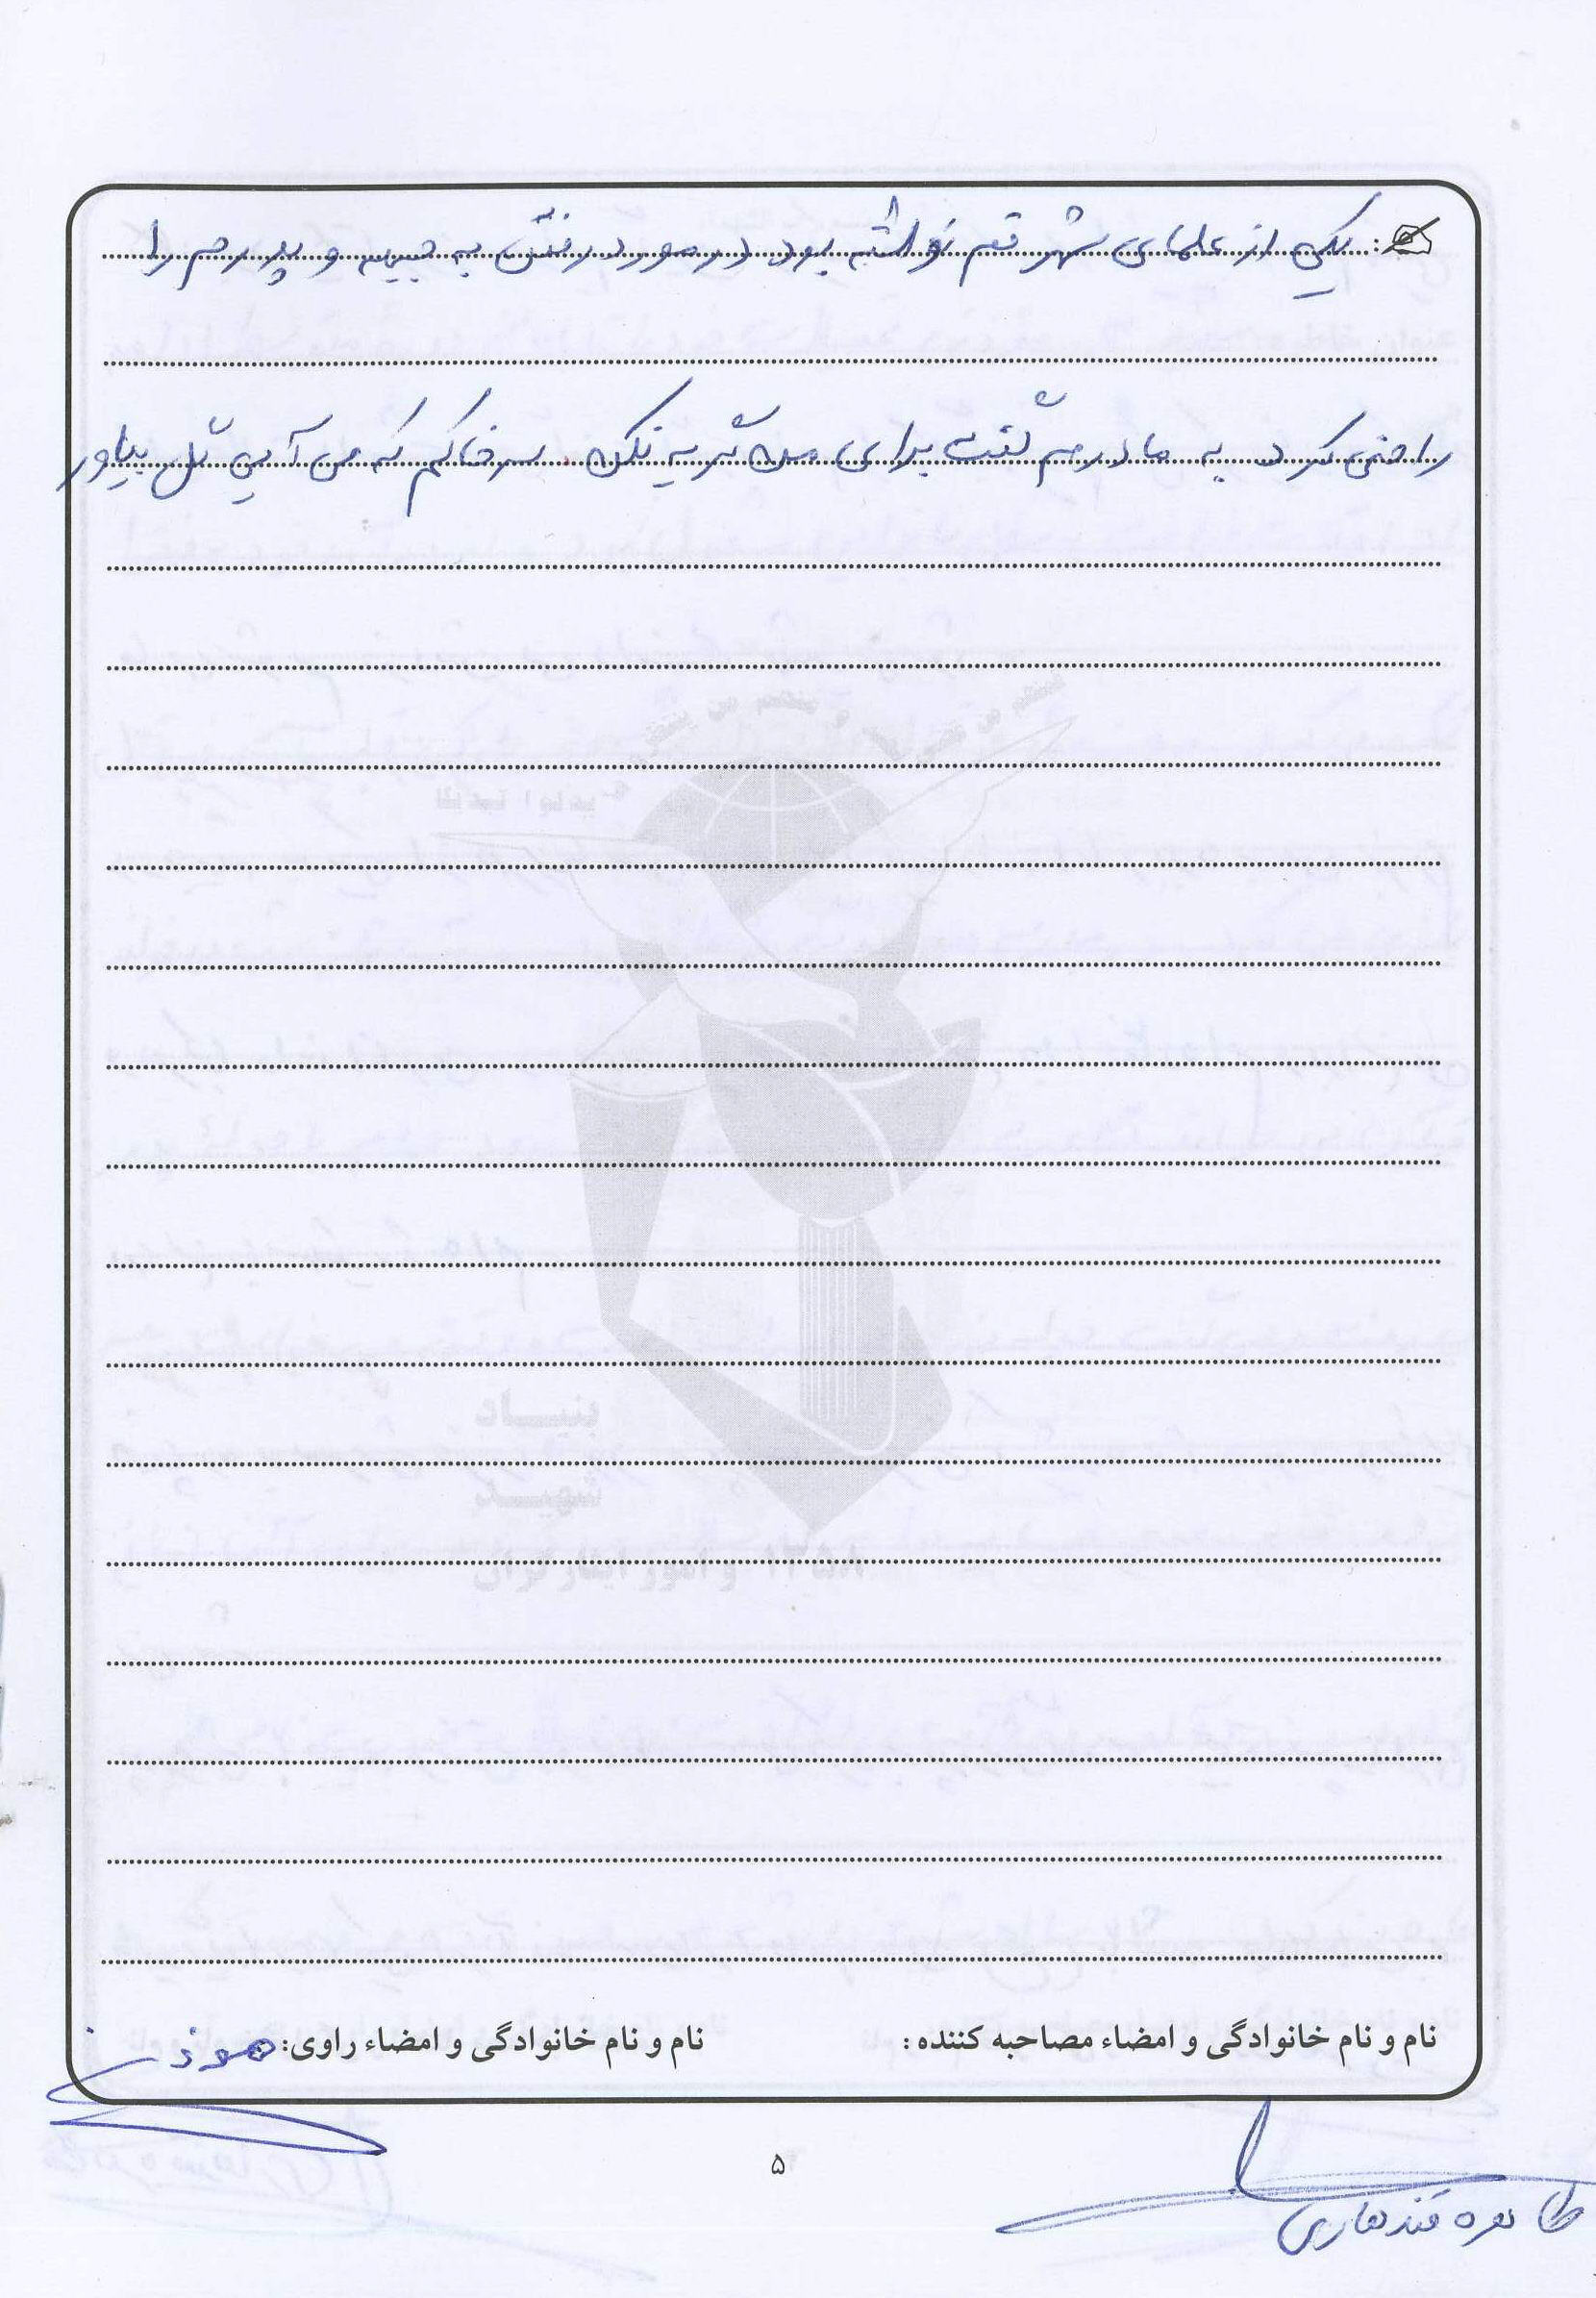 یکی از علمای شهر قم نوشته بود در مورد رفتن به جبهه و پدرم را
راضی کرد به مادرم گفت برای من گریه نکن سر خاکم که من آیی گل بیاور
نام و نام خانوادگی و امضاء مصاحبه کننده :
نام و نام خانوادگی و امضاء راوی:
طاهره قندهاری
۵
بنیاد
شهید
و امور ایثارگران ۱۳۵۸